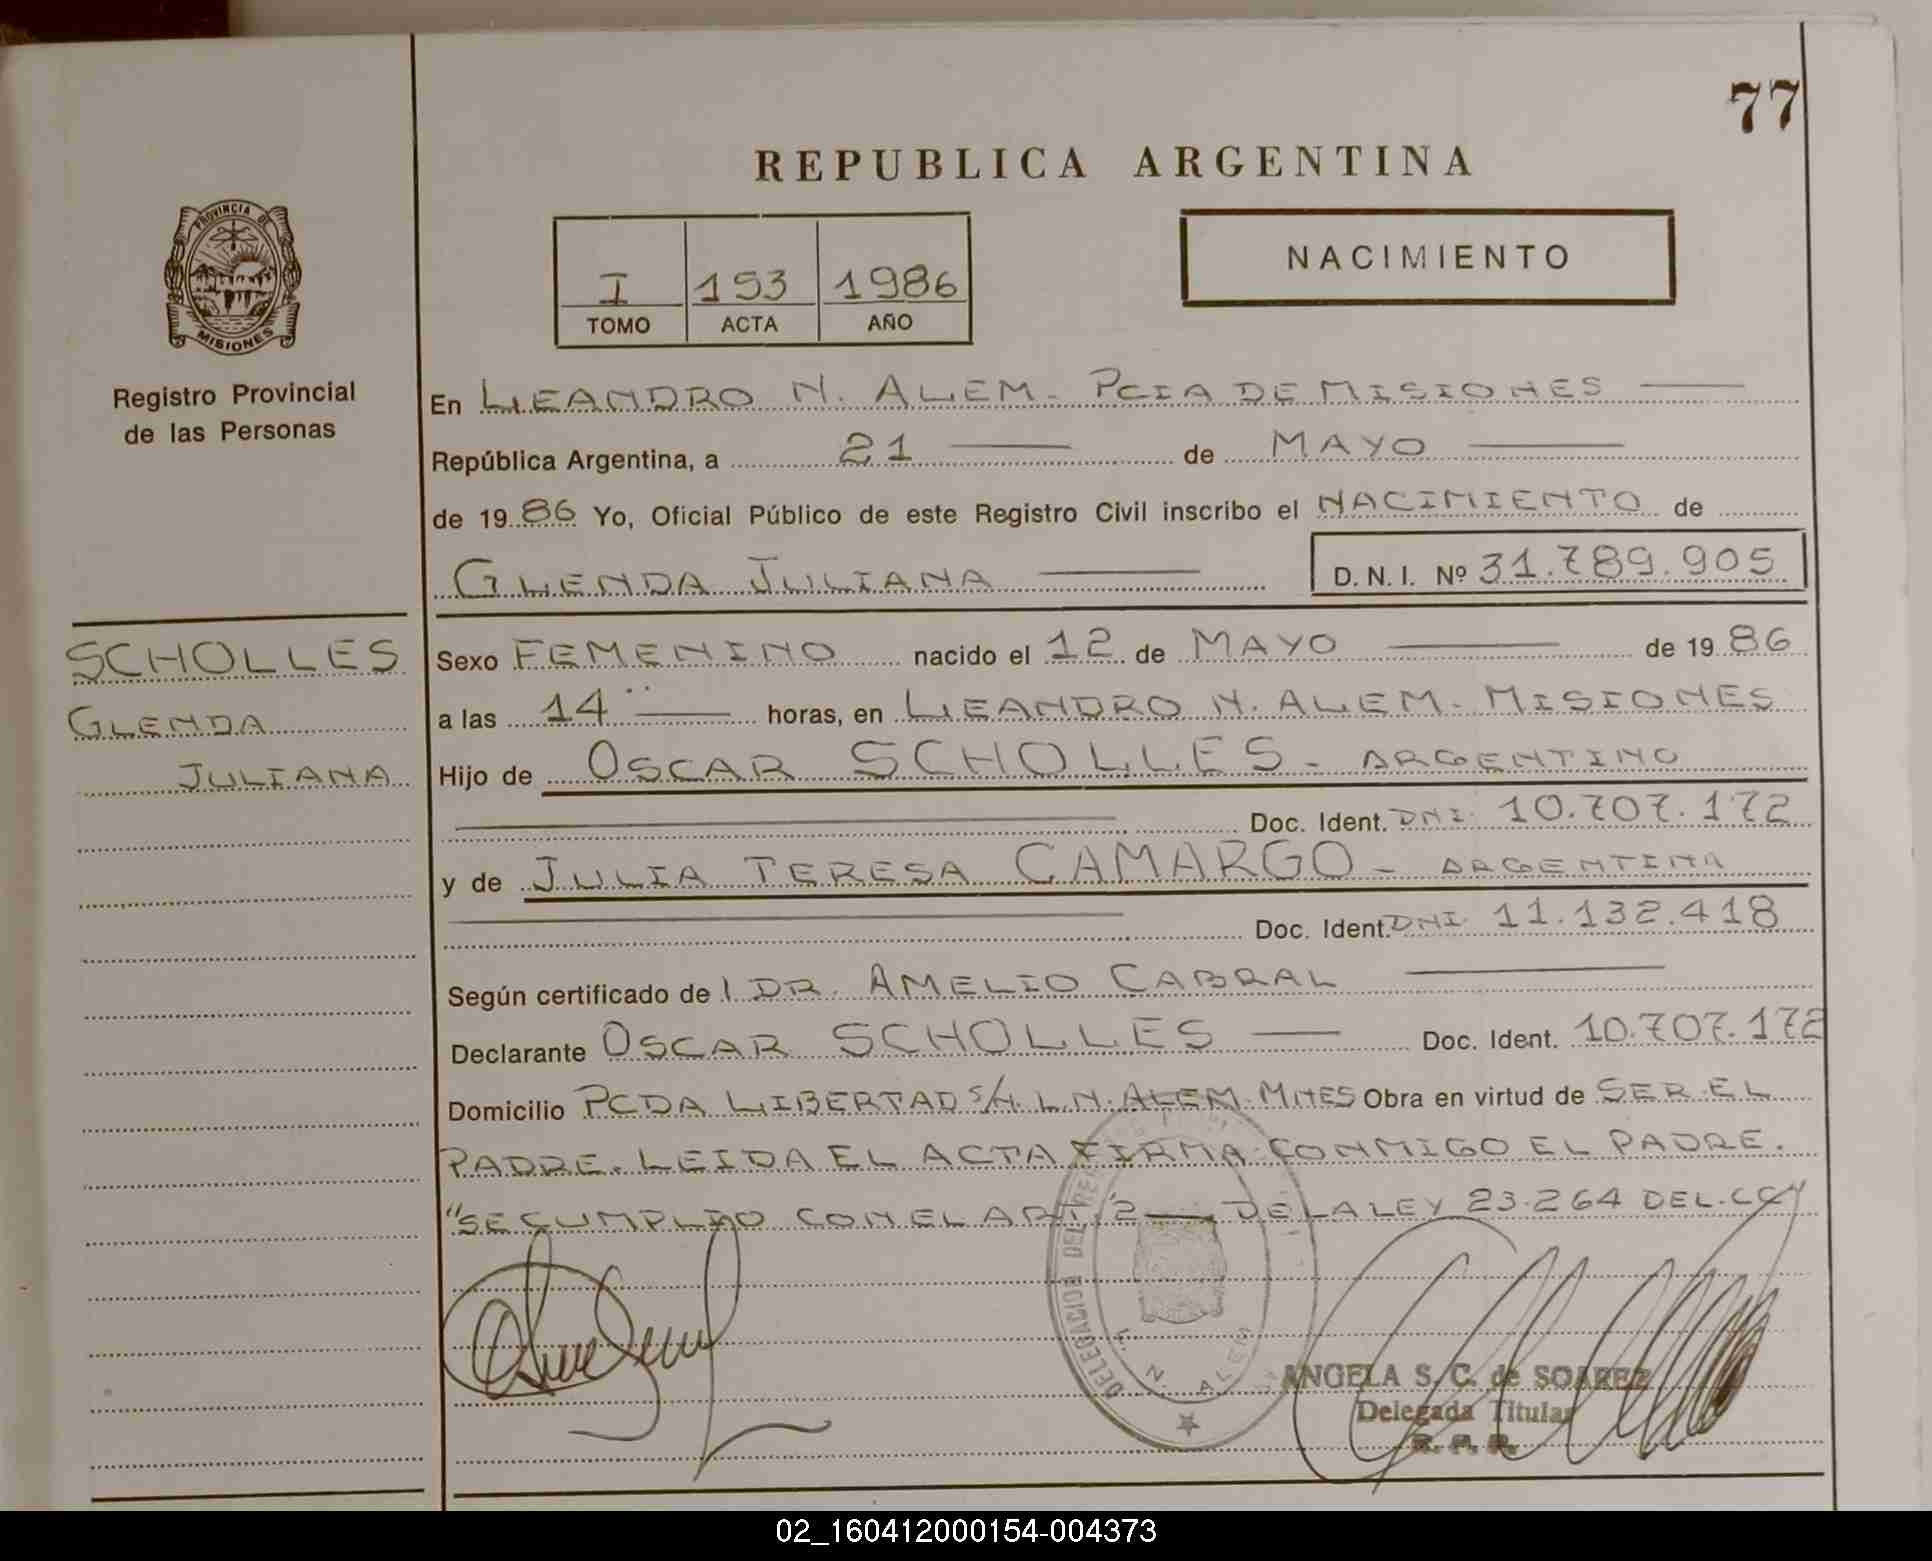 77
REPUBLICA ARGENTINA
PROVINCIA DE
MISIONES
Registro Provincial
de las Personas
I 193 1986
TOMO ACTA AÑO
NACIMIENTO
En LEANDRO N. ALEM - PCIA DE MISIONES
República Argentina, a 21 de MAYO
de 1986 Yo, Oficial Público de este Registro Civil inscribo el NACIMIENTO de
GLENDA JULIANA D.N.I. Nº 31.789.905
SCHOLLES
GLENDA
JULIANA
Sexo FEMENINO nacido el 12 de MAYO de 1986
a las 14 horas, en LEANDRO N. ALEM - MISIONES
Hijo de OSCAR SCHOLLES - ARGENTINO
Doc. Ident. DNI 10.707.172
y de JULIA TERESA CAMARGO - ARGENTINA
Doc. Ident. DNI 11.132.418
Según certificado de l DR. AMELIO CABRAL
Declarante OSCAR SCHOLLES Doc. Ident. 10.707.172
Domicilio PCDA LIBERTAD S/N. L.N. ALEM. MNES Obra en virtud de SER EL
PADRE. LEIDA EL ACTA FIRMA CONMIGO EL PADRE.
"SE CUMPLIO CON EL ART. 2 DE LA LEY 23.264 DEL CC"
DELEGACION DEL
L. N. ALEM
ANGELA S. C. de SOAREZ
Delegada Titular
R. P. P.
02_160412000154-004373